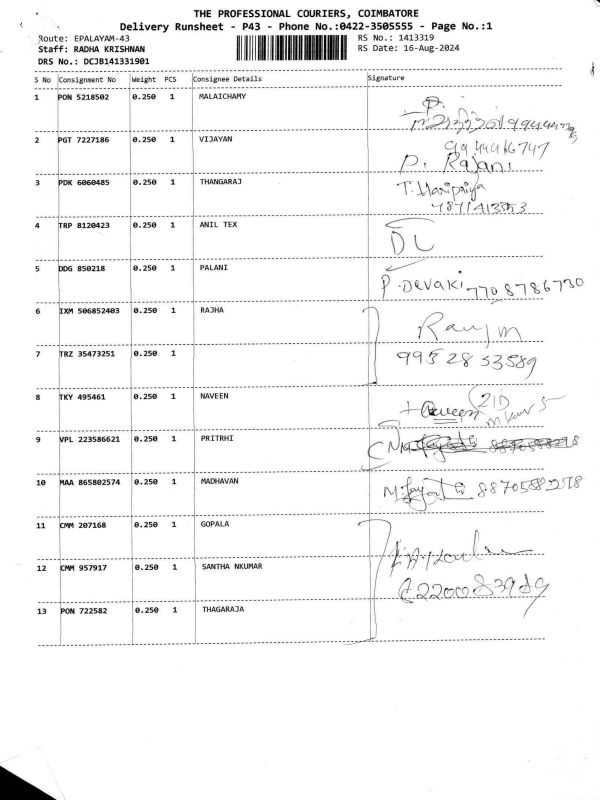 THE PROFESSIONAL COURIERS, COIMBATORE
Delivery Runsheet - P43 - Phone No.:0422-3505555 - Page No.:1
Route: EPALAYAM-43
RS No.: 1413319
Staff: RADHA KRISHNAN
RS Date: 16-Aug-2024
DRS No.: DCJB141331901
S No Consignment No Weight PCS Consignee Details Signature
1 PON 5218502 0.250 1 MALAICHAMY
2 PGT 7227186 0.250 1 VIJAYAN
P. Rajani
3 PDK 6060485 0.250 1 THANGARAJ T. Haripriya
4 TRP 8120423 0.250 1 ANIL TEX
5 DDG 850218 0.250 1 PALANI P. Devaki 7708786730
6 IXM 506852403 0.250 1 RAJHA
7 TRZ 35473251 0.250 1 9952853589
8 TKY 495461 0.250 1 NAVEEN Naveen
9 VPL 223586621 0.250 1 PRITRHI
10 MAA 865802574 0.250 1 MADHAVAN
11 CMM 207168 0.250 1 GOPALA
12 CMM 957917 0.250 1 SANTHA NKUMAR
13 PON 722582 0.250 1 THAGARAJA